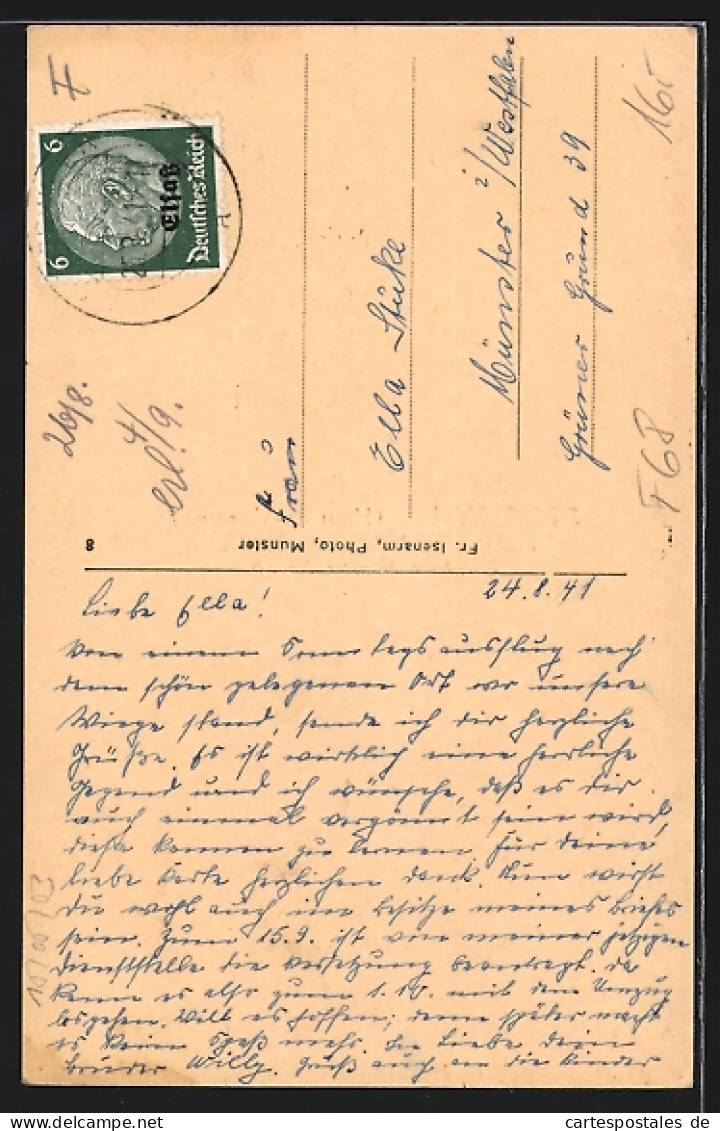 6 6
Elsaß
Deutsches Reich
26/8.
4/
erl. 9.
Frau
Ella Stüke
Münster i/Westfalen
Grüner Grund 39
165
F68
Fr. Isenarm, Photo, Munster
8
24.8.41
Liebe Ella!
Von einem Sonntagsausflug nach
dem schön gelegenen Ort wo unsere
Wiege stand, sende ich dir herzliche
Grüße. Es ist wirklich eine herrliche
Gegend und ich wünsche, daß es dir
auch einmal vergönnt sein wird,
diese kennen zu lernen. Für deine
liebe Karte herzlichen Dank. Nun wirst
du wohl auch im Besitze meines Briefes
sein. Zum 15.9. ist von meiner jetzigen
Dienststelle die Versetzung beantragt. Da
kann es also zum 1.10. mit dem Umzug
losgehen. Will es hoffen; denn später macht
es kein Spaß mehr. In Liebe dein
Bruder Willy. Gruß auch an die Kinder
www.cartespostales.de